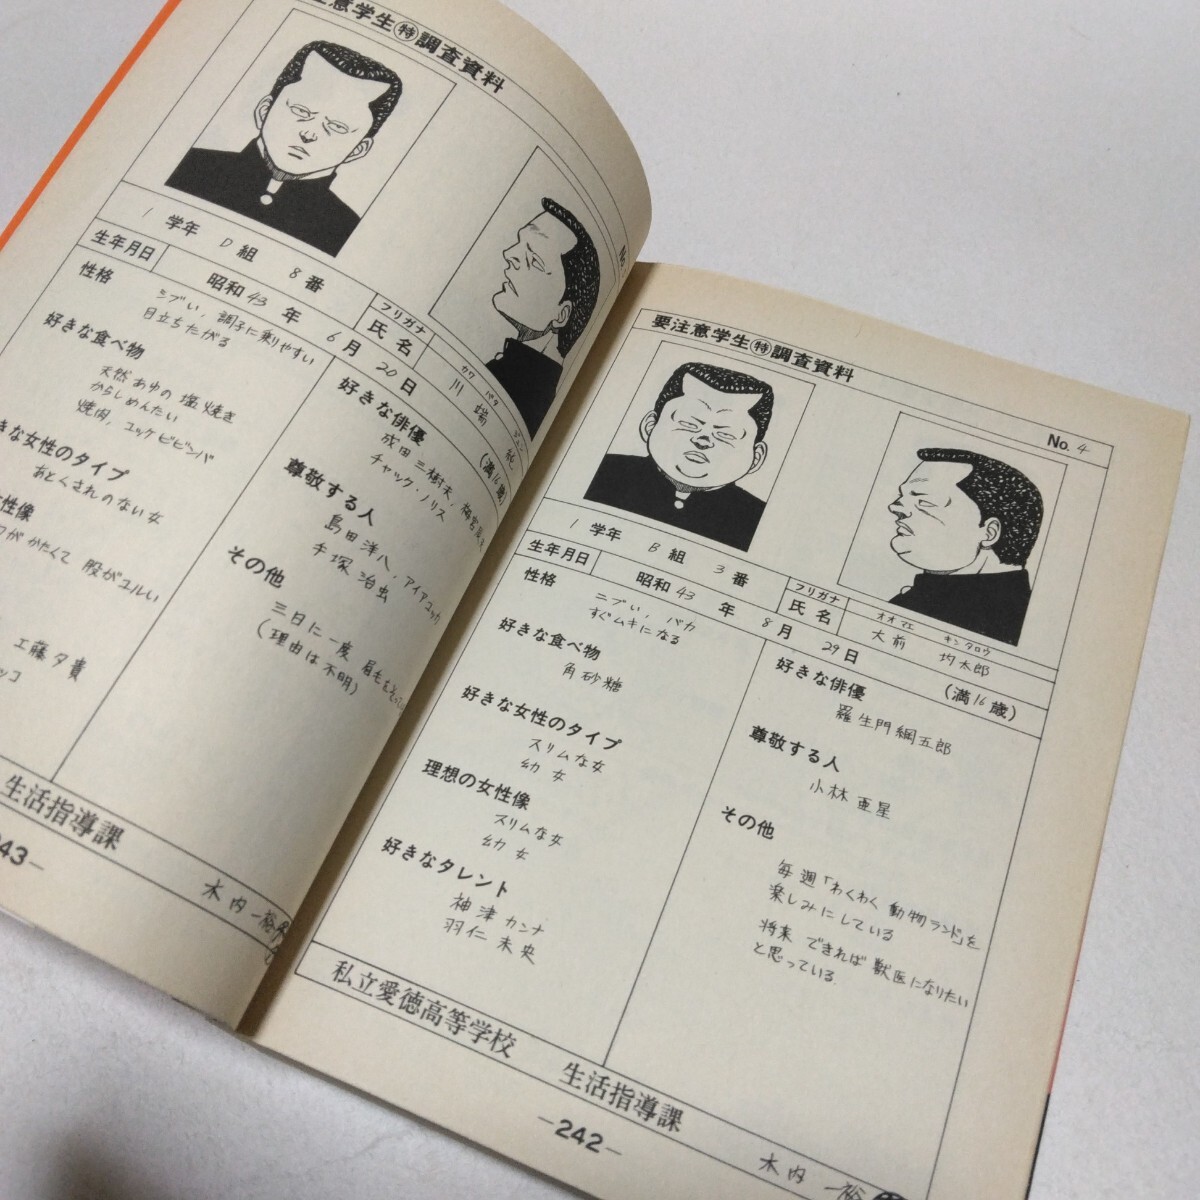 要注意学生㊕調査資料
No. 4
1 学年 B 組 3 番
生年月日 昭和 43 年 8 月 29 日 (満16歳)
フリガナ オオマエ キンタロウ
氏名 大前 均太郎
性格
ニブい, バカ
すぐムキになる
好きな食べ物
角砂糖
好きな女性のタイプ
スリムな女
幼女
理想の女性像
スリムな女
幼女
好きなタレント
神津カンナ
羽仁未央
好きな俳優
羅生門綱五郎
尊敬する人
小林亜星
その他
毎週「わくわく動物ランド」を
楽しみにしている
将来 できれば獣医になりたい
と思っている.
私立愛徳高等学校 生活指導課
木内一裕
—242—
意学生㊕調査資料
No.
1 学年 D 組 8 番
生年月日 昭和 43 年 6 月 20 日 (満16歳)
フリガナ カワ バタ
氏名 川端 純
性格
シブい, 調子に乗りやすい
目立ちたがる
好きな食べ物
天然あゆの塩焼き
からしめんたい
焼肉, ユッケビビンバ
きな女性のタイプ
おとくされのない女
性像
がかたくて 股がユルい
工藤夕貴
ッコ
好きな俳優
成田三樹夫,
チャック・ノリス
尊敬する人
島田洋八, アイアコッカ
手塚治虫
その他
三日に一度 眉毛を
(理由は不明)
生活指導課
木内一裕
43—